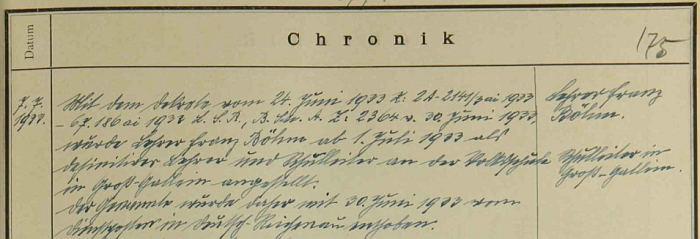 Datum
Chronik
175
7. 7. 1933.
Mit dem Dekrete vom 24. Juni 1933 Z: 2A-2141/3 ai 1933
- 67.186 ai 1932 L. S. R., B. Sch. A. Z. 2364 v. 30. Juni 1933,
wurde Lehrer Franz Böhm ab 1. Juli 1933 als
definitiver Lehrer und Schulleiter an der Volksschule
in Groß-Gallein angestellt.
Der Genannte wurde daher mit 30. Juni 1933 vom
Dienstposten in Deutsch-Reichenau enthoben.
Lehrer Franz
Böhm.
Schulleiter in
Groß-Gallein.